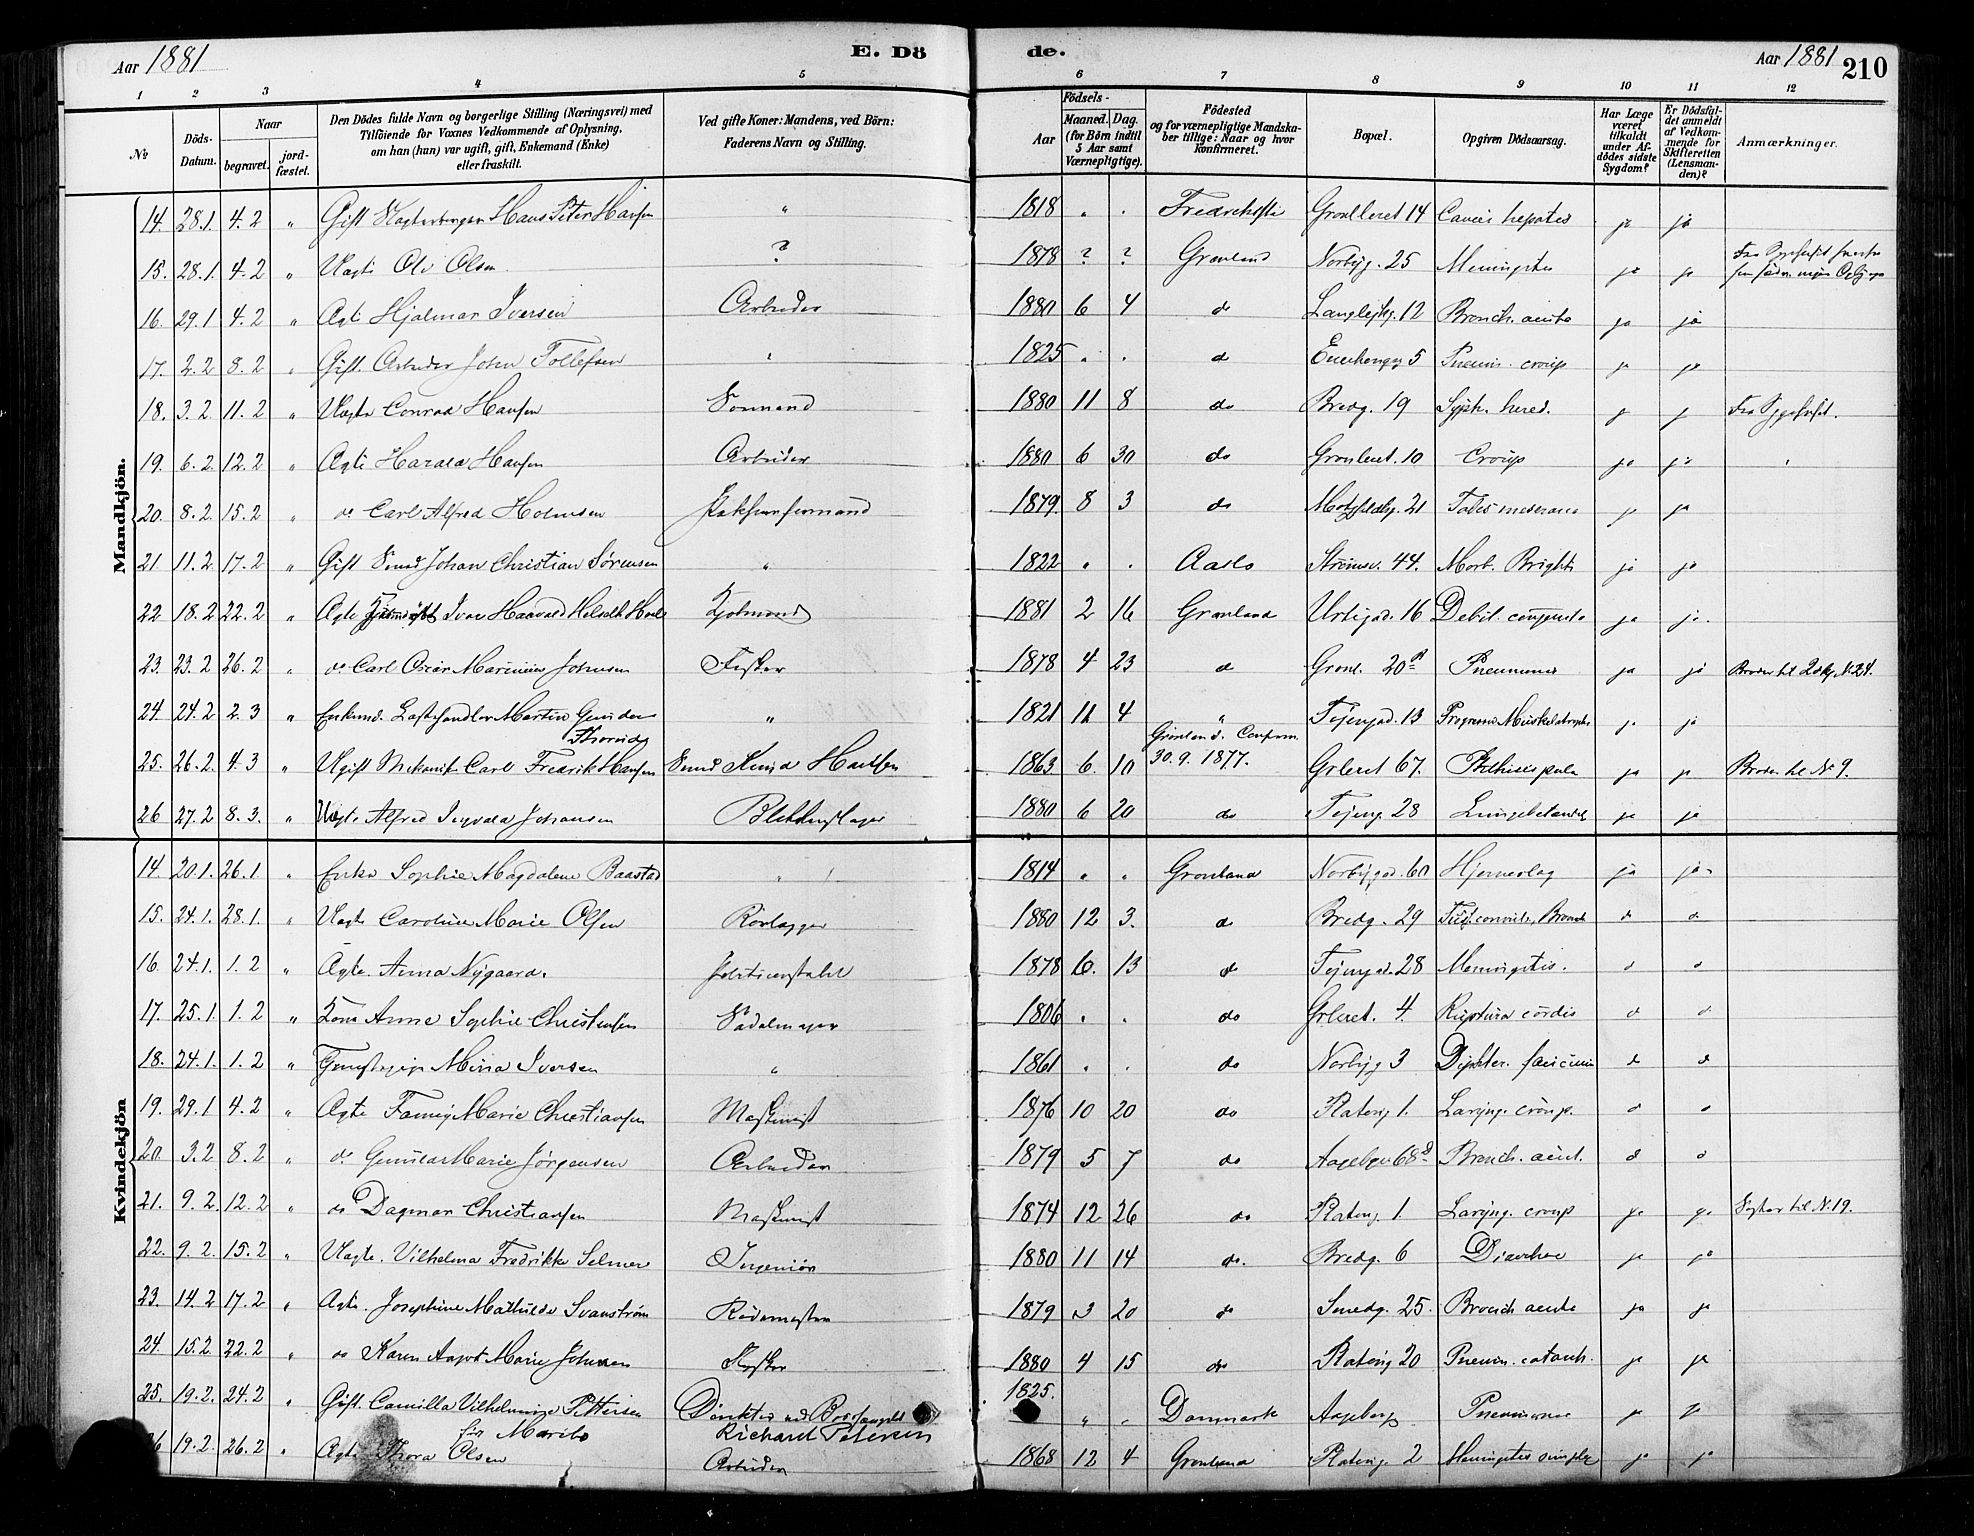 Aar 1881 E. Dö
de. Aar 1881 210
1 2 3 4 5 6 7 8 9 10 11 12
№ Döds-Datum. Naar begravet. jord-fæstet. Den Dödes fulde Navn og borgerlige Stilling (Næringsvei) med Tilföiende for Voxnes Vedkommende af Oplysning, om han (hun) var ugift, gift, Enkemand (Enke) eller fraskilt. Ved gifte Koner: Mandens, ved Börn: Faderens Navn og Stilling.
Födsels- Aar Maaned. Dag. (for Börn indtil 5 Aar samt Værnepligtige). Födested og for værnepligtige Mandskaber tillige: Naar og hvor konfirmeret. Bopæl. Opgiven Dödsaarsag. Har Læge været tilkaldt under Afdödes sidste Sygdom? Er Dödsfaldet anmeldt af Vedkommende for Skifteretten (Lensmanden)? Anmærkninger.
Mandkjön.
14. 28.1. 4.2 " Gift Hans Peter Hansen " 1818 " . Gronlleret 14 Cancer hepatis ja ja
15. 28.1. 4.2 " Uagte Ole Olsen ? 1878 ? ? Gronland Norbyg. 25 Meningites ja ja
16. 29.1 4.2 " Agte Hjalmar Iversen Arbeider 1880 6 4 do 12 Bronch. acuta ja ja
17. 2.2 8.2 " Gift. Arbeider John Tollefsen " 1825 " . do Enerhaugg 5 Pneum. croup ja ja
18. 3.2 11.2 " Uagte Conrad Hansen Sømand 1880 11 8 do Bredg. 19 Syph. hered. ja ja Fra Sygehuset.
19. 6.2 12.2 " Agte Harald Hansen Arbeider 1880 6 30 do Gronleret. 10 Croup ja ja
20. 8.2 15.2 " do Carl Alfred Holmsen 1879 8 3 do Motzfeldtg. 21 Tabes meseraica ja ja
21 11.2 17.2 " Gift Sømd Johan Christian Sørensen " 1822 " . Aaslo Strømsv. 44. Morb. Brighti ja ja
22 18.2 22.2 " Agte Ivar Haavald 1881 2 16 Gronland Urtegad. 16 Debil. congenita ja ja.
23. 23.2 26.2 " do Carl Oscar Marinius Johnsen Fisker 1878 4 23 do Gronl. 20 Pneumonie ja ja Broder til 2dkj. N. 24.
24. 24.2 2.3 " Enkemd. Martin Gundersen " 1821 11 4 " Tøjengad. 13 Progressiv Muskelatrophi ja ja
25. 26.2. 4.3 " Ugift Mekanik. Carl Fredrik Hansen 1863 6. 10 Grønland. Confirm. 30.9. 1877. Grleret 67. Phthisis pulm ja ja Broder til N. 9.
26 27.2 8.3. " Uagte Alfred Ingvald Johansen Blikkenslager 1880 6 20 do Tøjeng. 28 ja ja
Kvindekjön
14. 20.1. 26.1. " Enke Sophie Magdalene Baastad " 1814 " " Gronland Norbygad. 60 Hjerneslag ja ja
15. 24.1. 28.1. " Uagte Caroline Marie Olsen Rørlægger 1880 12 3. do Bredg. 29 do do
16. 24.1. 1.2 " Agte. Anna Nygaard. 1878 6. 13 do Tøjengad. 28 Meningitis. do do
17. 25.1. 1.2 " Kone Anne Sophie Christensen Sadelmager 1806 " . do Grleret. 4. Ruptura cordis do do
18. 24.1. 1.2 " Mina Iversen " 1861 " . do Norbyg 3 Diphter. faucium do do
19. 29.1 4.2 " Agte Fanny Marie Christiansen Maskinist 1876 10 20 do Platoug 1. Laryng. croup. do do
20 3.2 8.2 " do Gunild Marie Jørgensen Arbeider 1879 5 7 do Aagebgv. 68 Bronch. acut. do do
21. 9.2. 12.2 " do Dagmar Christiansen Maskinist 1874 12 26 do Platoug 1. Laryng. croup ja ja Søster til N. 19.
22. 9.2. 15.2 " Uagte. Vilhelma Fredrikke Selmer Ingeniør 1880 11 14 do. Bredg. 6 Diarrhoe ja ja
23. 14.2 17.2 " Agte. Josephine Mathilde Svanstrøm Rodemester 1879 3 20 do Smedg. 25. Bronch acuta ja ja
24. 15.2 22.2 " do Karen Aagot Marie Johnsen Fisker 1880 4 15 do Platoug 20 Pneum. catarrh. ja ja
25. 19.2. 24.2 " Gift. Camilla Vilhelmine Pettersen Direktør ved 1825. " . Danmark Aagebergs Pneumonie ja ja
før Maribo Richard Petersen
26 19.2. 26.2 " Agte Thora Olsen Arbeider 1868 12 4 Gronland Platoug 2 Meningites simplex ja ja